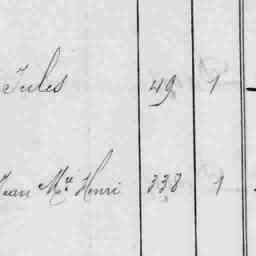 Jules 49 1
Jean Mie Henri 338 1